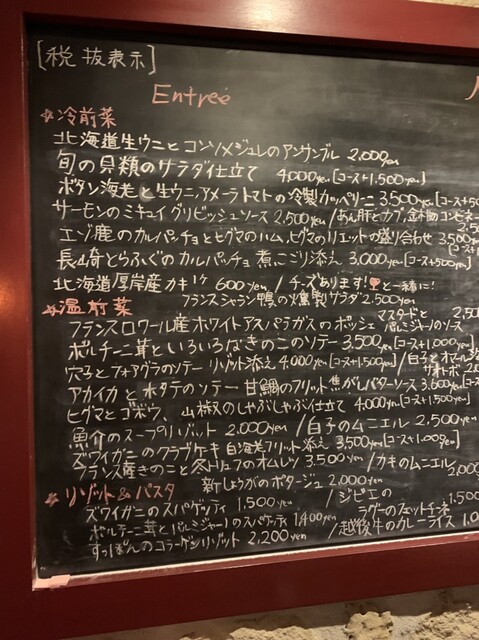 [税抜表示]
Entrée
冷前菜
北海道生ウニとコンソメジュレのアンサンブル 2,000yen
旬の貝類のサラダ仕立て 4,000yen [コース+1,500yen]
ボタン海老と生ウニ、アメーラトマトの冷製カッペリーニ 3500yen [コース+50
サーモンのミキュイ グリビッシュソース 2,500yen / あん肝とカブ、金柑のコンビネー
エゾ鹿のカルパッチョとヒグマのハム、ヒグマのリエットの盛り合わせ 3500yen
長崎とらふぐのカルパッチョ 煮こごり添え 3,000yen [コース+500yen]
北海道厚岸産カキ 1ケ 600yen / チーズあります! と一緒に!
フランスシャラン鴨の燻製サラダ 2,500yen
温前菜
フランスロワール産ホワイトアスパラガスのポッシェ マスタードと
ポルチーニ茸といろいろなきのこのソテー 3,500yen [コース+1,000yen]
穴子とフォアグラのソテー リゾット添え 4,000yen [コース+1,500yen] / 白子とオマール
アカイカと水タテのソテー 甘鯛のフリット焦がしバターソース 3,600yen [コース
ヒグマとゴボウ、山椒のしゃぶしゃぶ仕立て 4,000yen [コース+1,500yen]
魚介のスープリゾット 2,000yen / 白子のムニエル 2,500yen
ズワイガニのクラブケーキ 白海老フリット添え 3,500yen [コース+1,000yen]
フランス産きのこと冬トリュフのオムレツ 3,500yen / カキのムニエル
新しょうがのポタージュ 2,000yen
リゾット&パスタ
ズワイガニのスパゲッティ 1,500yen / ジビエの
ラグーのフェットチーネ 1,500
ポルチーニ茸とパルミジャーノのスパゲッティ 1,400yen / 越後牛のカレーライス 1,0
すっぽんのコラーゲンリゾット 2,200yen